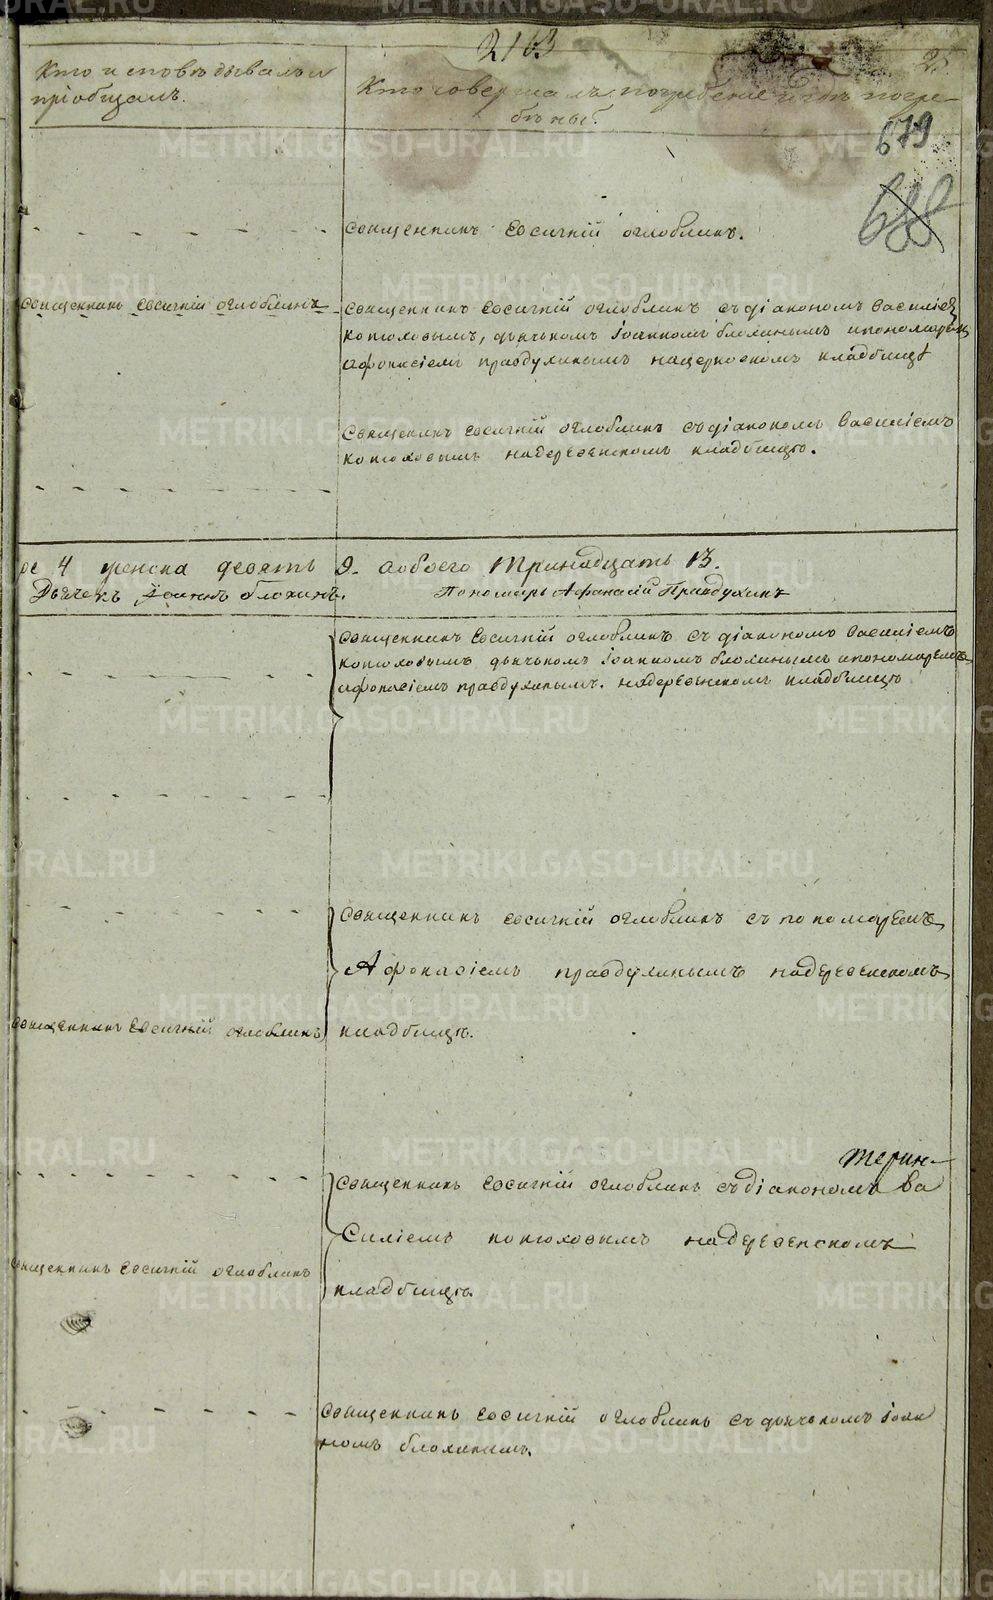 2163
25
Кто исповѣдывалъ и
пріобщалъ.
Кто совершалъ погребеніе и гдѣ погре-
бены.
679
688
Священникъ Евсигній Оглоблинъ.
Священникъ Евсигній Оглоблинъ
Священникъ Евсигній Оглоблинъ съ діакономъ Василіем
Конюховымъ, дьячкомъ Іоанномъ Блохинымъ и пономарем
Афонасіемъ Правдухинымъ на церковномъ кладбищѣ
Священникъ Евсигній Оглоблинъ съ діакономъ Василіемъ
Конюховымъ на деревенскомъ кладбищѣ.
4 женска девять 9. а обоего тринадцать 13.
Дьячекъ Іоаннъ Блохинъ. Пономарь Афанасій Правдухинъ
Священникъ Евсигній Оглоблинъ съ діакономъ Василіемъ
Конюховымъ дьячкомъ Іоанномъ Блохинымъ и пономаремъ
Афонасіемъ Правдухинымъ. на деревенскомъ кладбищѣ
Священникъ Евсигній Оглоблинъ съ пономаремъ
Афонасіемъ Правдухинымъ на деревенскомъ
Священникъ Евсигній Оглоблинъ
кладбищѣ.
Священникъ Евсигній Оглоблинъ съ діакономъ Ва
силіемъ Конюховымъ на деревенскомъ
Священникъ Евсигній Оглоблинъ
кладбищѣ.
Священникъ Евсигній Оглоблинъ съ дьячкомъ Іоан
номъ Блохинымъ.
METRIKI.GASO-URAL.RU